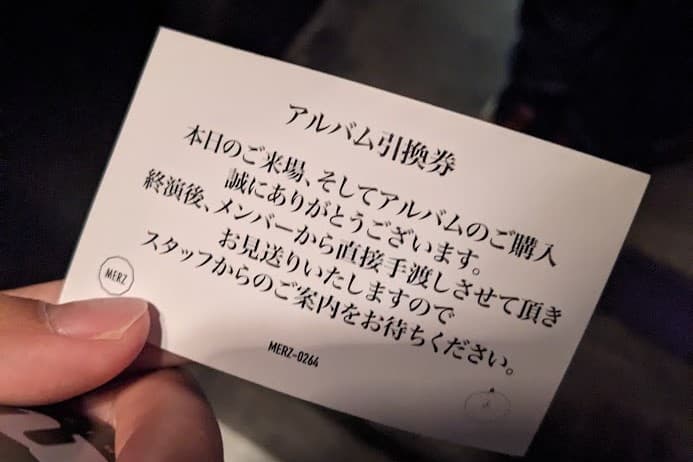 アルバム引換券
本日のご来場、そしてアルバムのご購入
誠にありがとうございます。
終演後、メンバーから直接手渡しさせて頂き
お見送りいたしますので
スタッフからのご案内をお待ちください。
MERZ
MERZ-0264